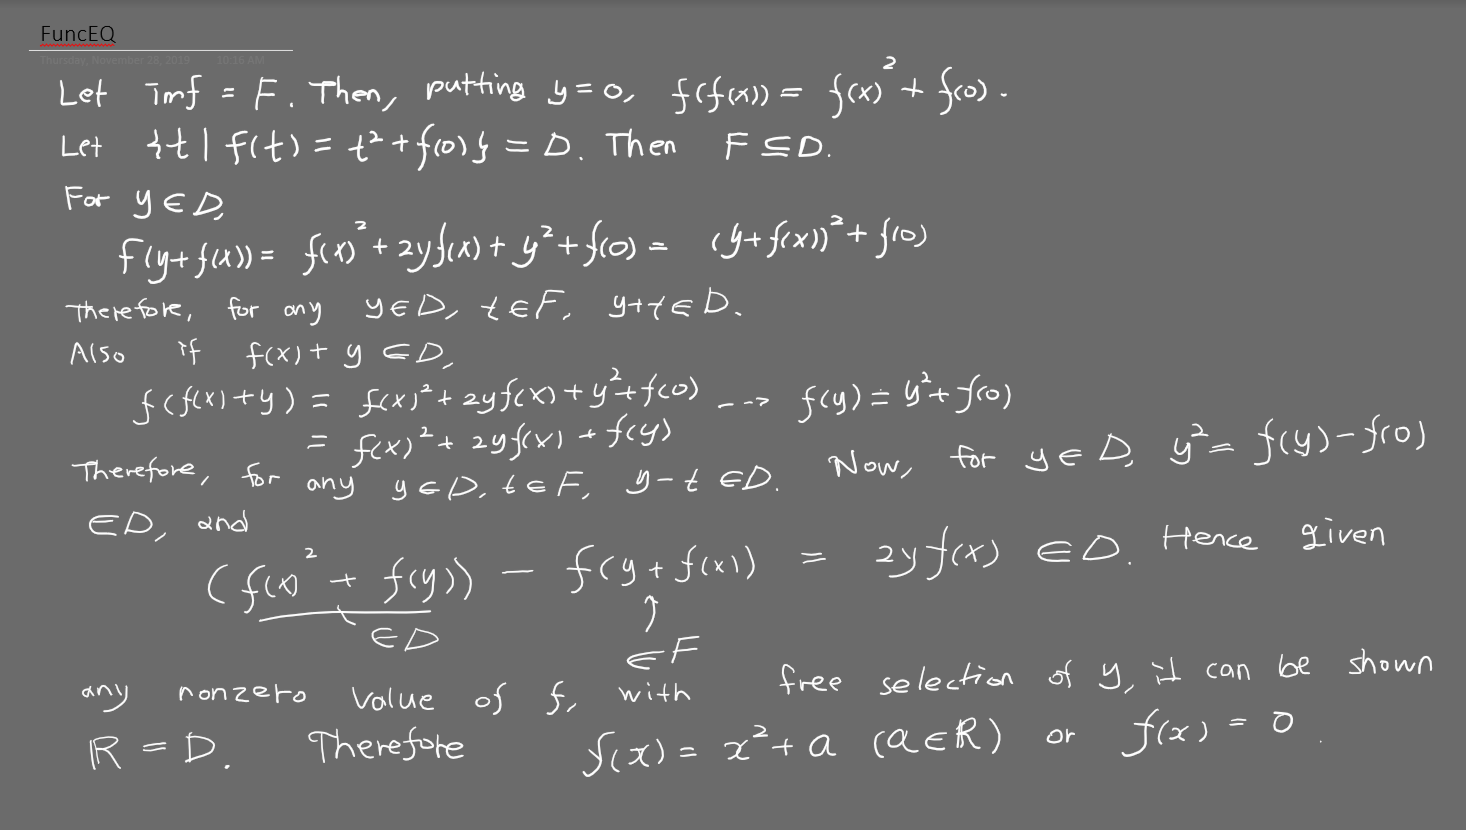 FuncEQ
Thursday, November 28, 2019 10:16 AM
Let imf = F. Then, putting y=0, f(f(x)) = f(x)² + f(0).
Let {t | f(t) = t² + f(0)} = D. Then F⊆D.
For y∈D,
f(y+f(x)) = f(x)² + 2yf(x) + y² + f(0) = (y+f(x))² + f(0)
Therefore, for any y∈D, t∈F, y+t∈D.
Also if f(x)+y ∈D,
f(f(x)+y) = f(x)² + 2yf(x) + y² + f(0) --→ f(y) = y² + f(0)
= f(x)² + 2yf(x) + f(y)
Therefore, for any y∈D, t∈F, y-t ∈D. Now, for y∈D, y² = f(y) - f(0)
∈D, and
(f(x)² + f(y)) - f(y+f(x)) = 2yf(x) ∈D. Hence given
∈D ↑
∈F
any nonzero value of f, with free selection of y, it can be shown
ℝ = D. Therefore f(x) = x² + a (a∈ℝ) or f(x) = 0.